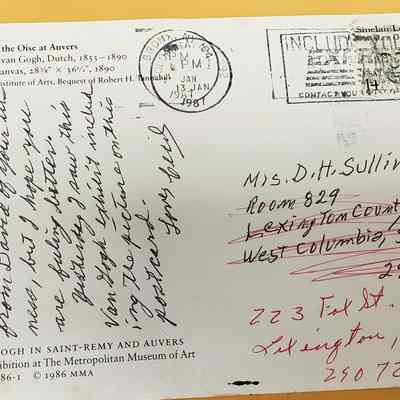 the Oise at Auvers
van Gogh, Dutch, 1853–1890
anvas, 28⅞" × 36¼", 1890
nstitute of Arts, Bequest of Robert H. Tannahill
from David of your ill
ness, but I hope you
are feeling better.
Yesterday I saw this
Van Gogh exhibit includ
ing the picture on this
postcard.
Love,
OGH IN SAINT-REMY AND AUVERS
hibition at The Metropolitan Museum of Art
86-1 © 1986 MMA
BRONX, NY
PM
JAN
13 JAN
1987
INCLUDE YOUR
CONTACT YOUR
Sinclair
Mrs. D. H. Sulliv
Room 829
Lexington Count
West Columbia, S
29
223 Fox St.
Lexington,
2907